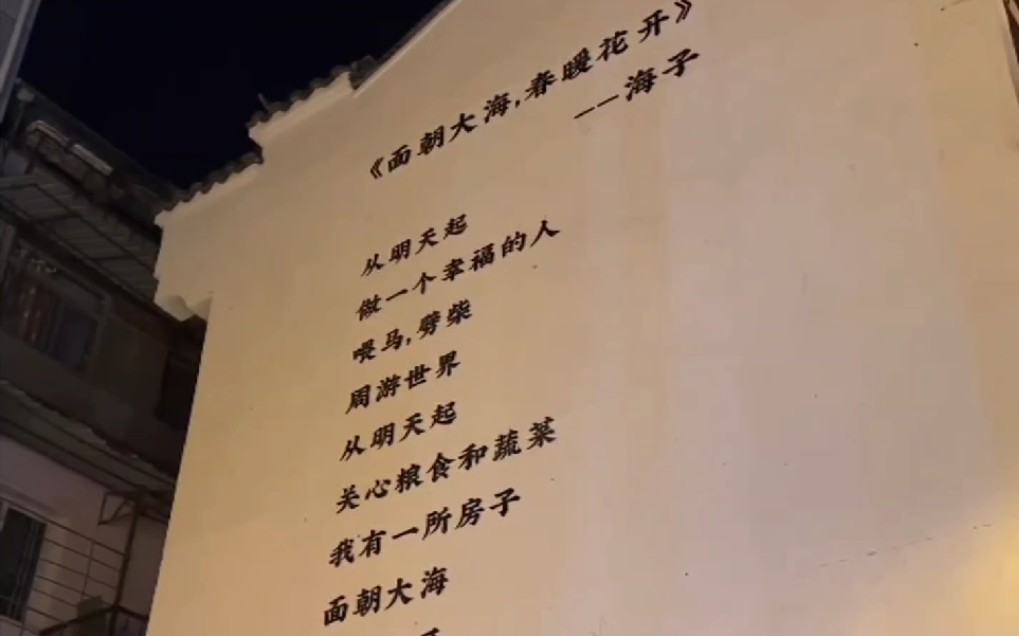 《面朝大海,春暖花开》
——海子
从明天起
做一个幸福的人
喂马,劈柴
周游世界
从明天起
关心粮食和蔬菜
我有一所房子
面朝大海